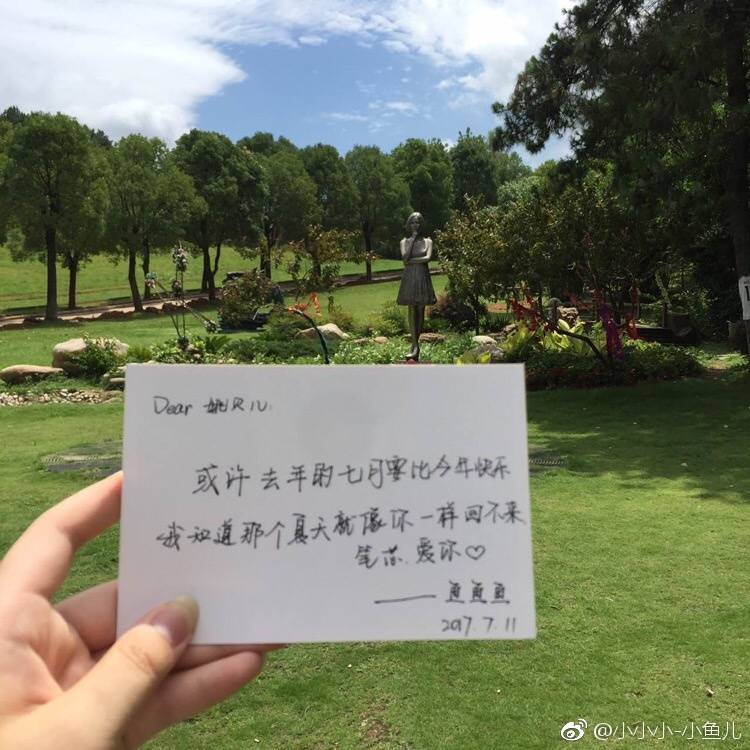 Dear 姚贝儿.
或许去年的七月要比今年快乐
我知道那个夏天就像你一样回不来
笔芯.爱你♡
——鱼鱼鱼
2017.7.11
@小小小-小鱼儿